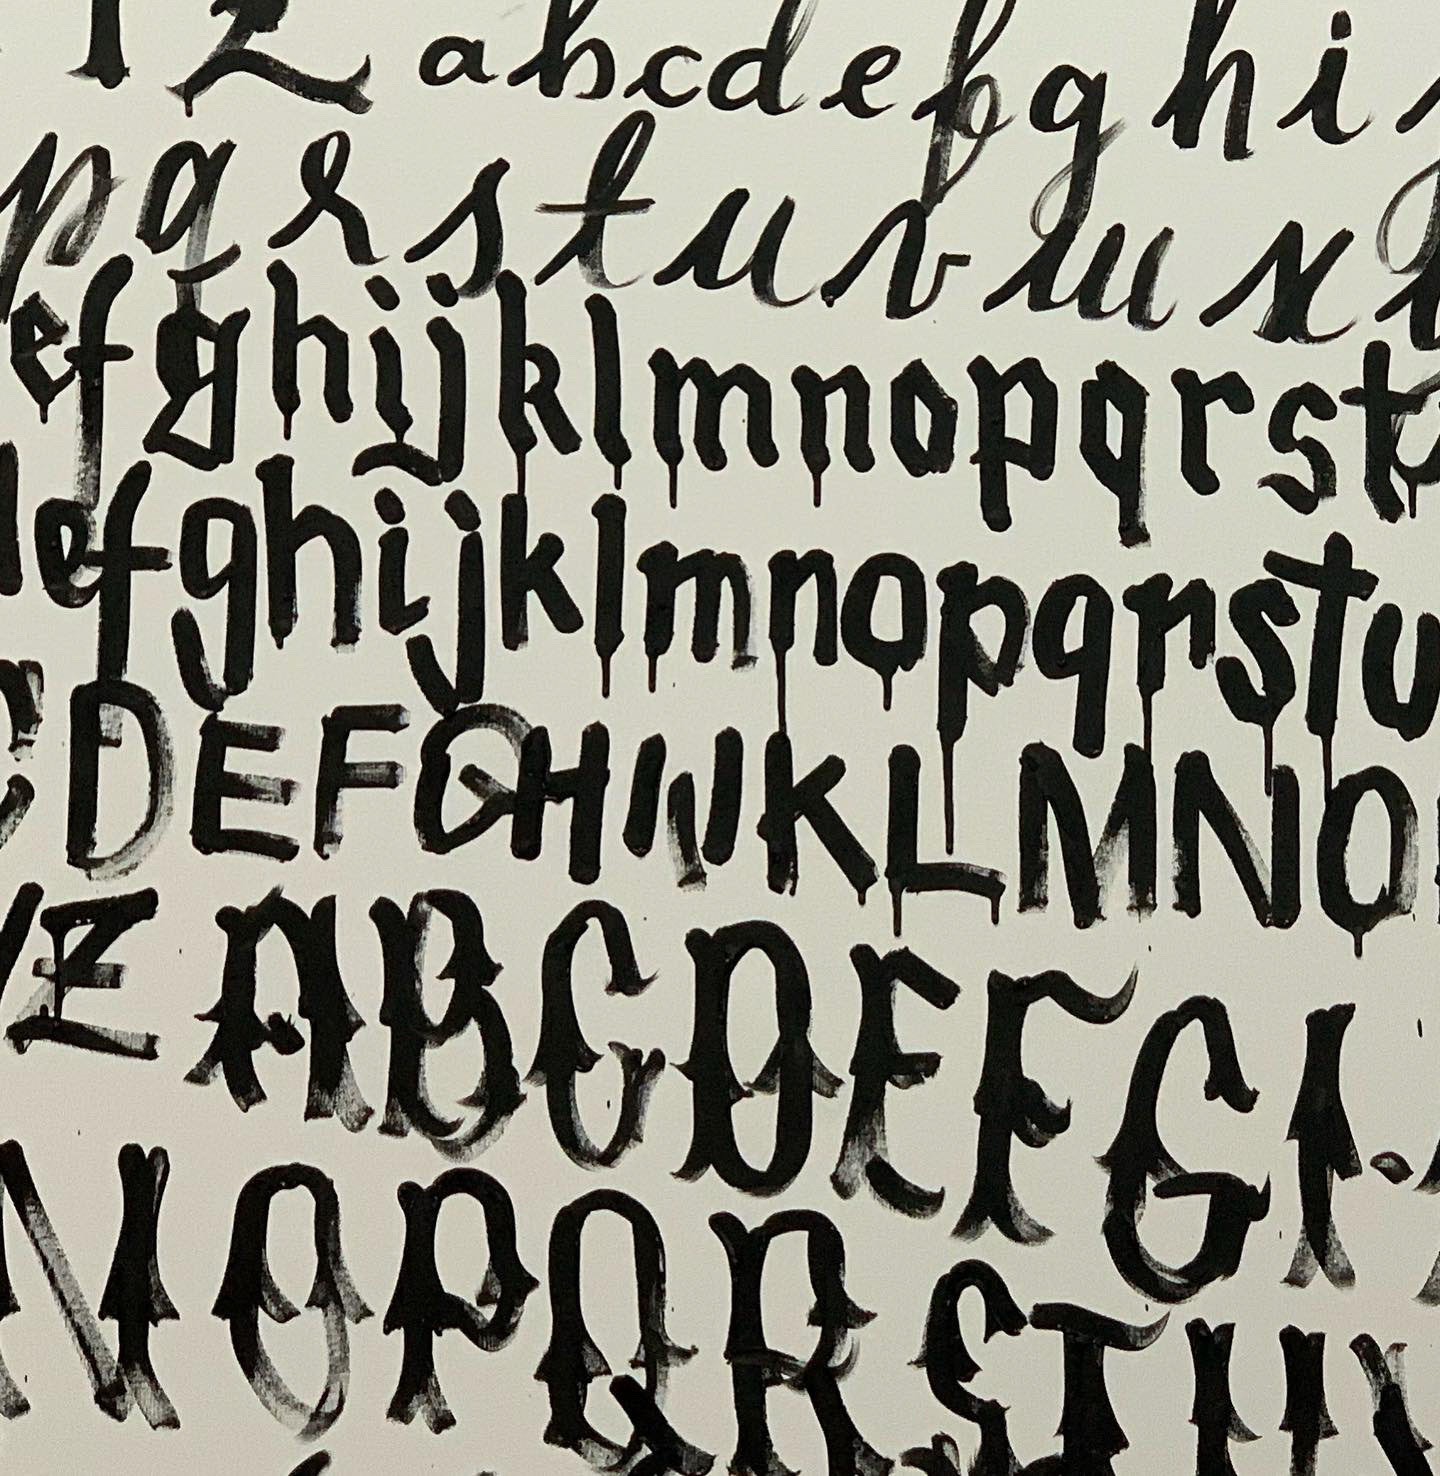 Y Z a b c d e f g h i
p q r s t u v w x y
e f g h i j k l m n o p q r s t
d e f g h i j k l m n o p q r s t u
C D E F G H I J K L M N O
Y Z A B C D E F G I
N O P Q R S T U V